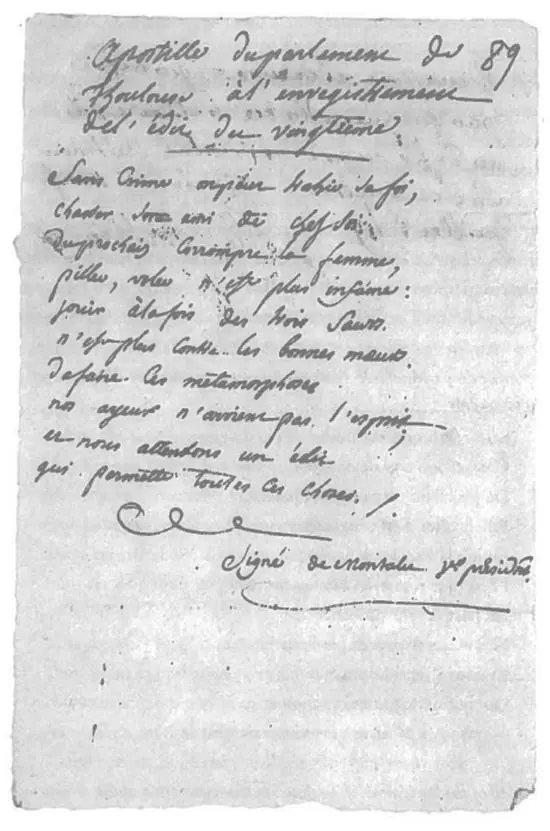 Apostille du parlement de 89
Thoulouse à l'enregistrement
de l'édit du vingtième
Sans Crime on peut trahir sa foi,
chasser son ami de chez soi
Du prochain Corrompre la femme,
piller, voler n'est plus infâme:
jouir à la fois des trois Saeurs
n'est plus contre les bonnes maeurs.
de faire Ces métamorphoses
nos ayeux n'avoient pas l'esprit,
et nous attendons un édit
qui permette toutes Ces choses./.
Signé de Montalu pr. président